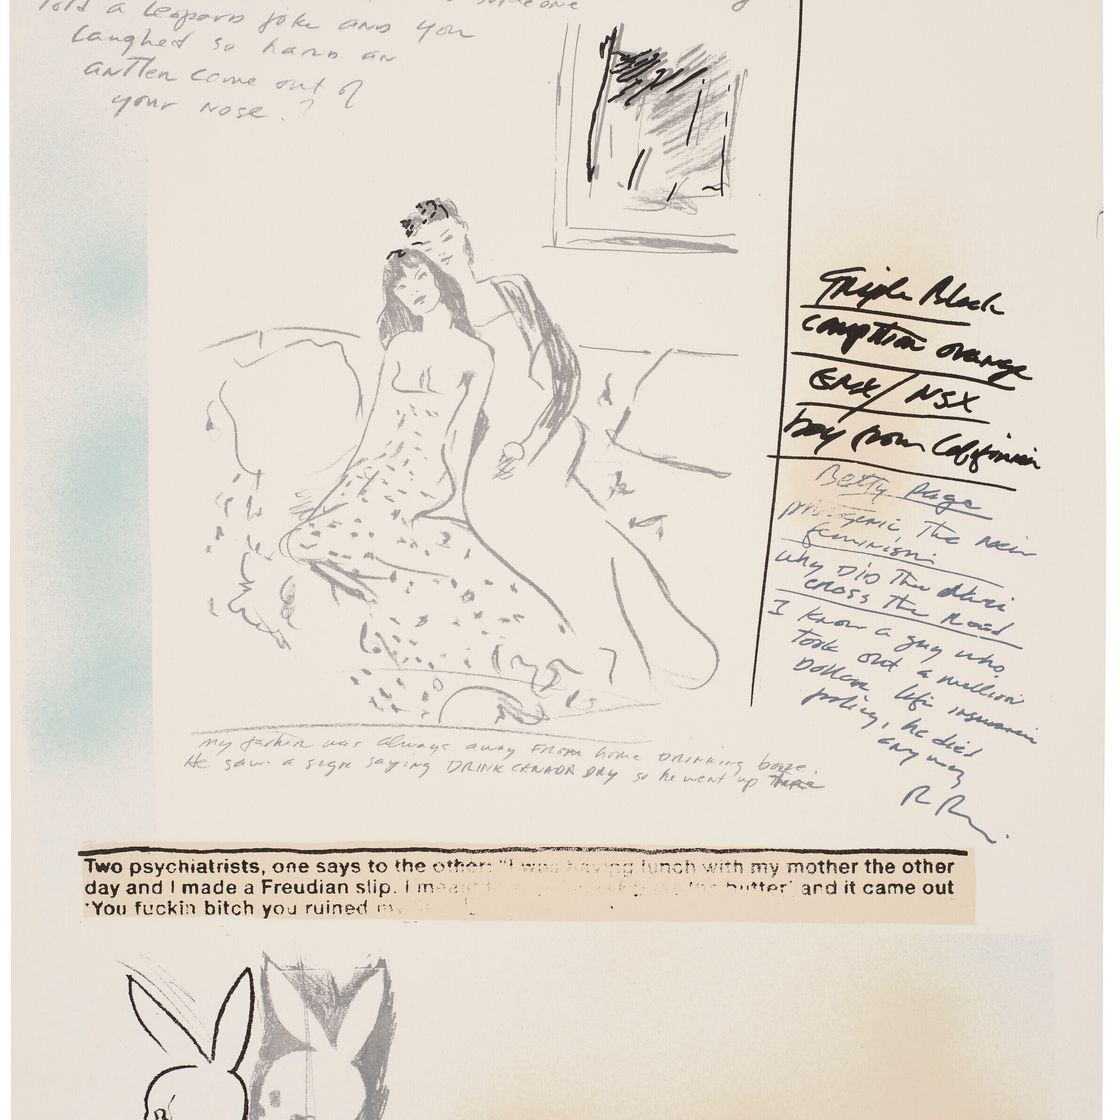 told a leopard joke and you
someone
laughed so hard an
antler come out of
your nose.?
Triple Black
orange
GNX/NSX
boy from California
Betty Page
the new
feminism
why DiD The
cross The Road
I know a guy who
took out a million
Dollar life insurance
policy, he died
anyway
my father was always away FROM home DRINKING booze.
He saw a sign saying DRINK CANADA DRY so he went up There
Two psychiatrists, one says to the other: "I was having lunch with my mother the other
day and I made a Freudian slip. I meant butter' and it came out
'You fuckin bitch you ruined my